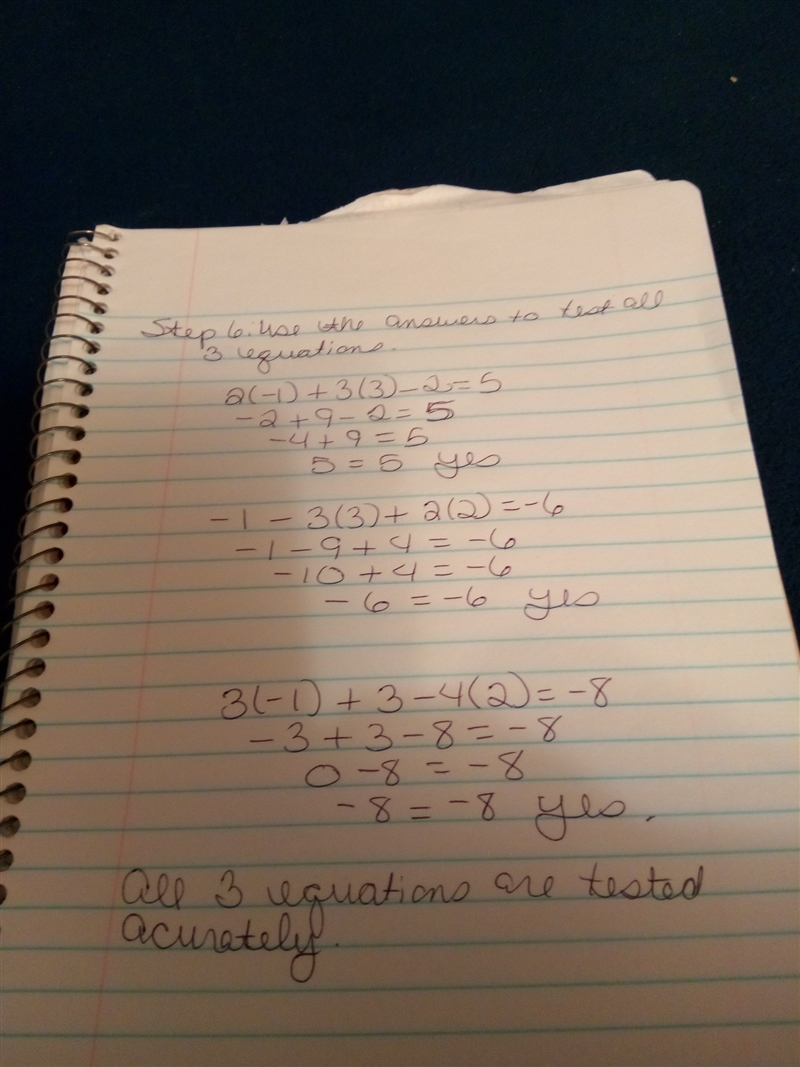 Step 6. Use the answers to test all
3 equations.
2(-1) + 3(3) - 2 = 5
-2 + 9 - 2 = 5
-4 + 9 = 5
5 = 5 yes
-1 - 3(3) + 2(2) = -6
-1 - 9 + 4 = -6
-10 + 4 = -6
-6 = -6 yes
3(-1) + 3 - 4(2) = -8
-3 + 3 - 8 = -8
0 - 8 = -8
-8 = -8 yes.
All 3 equations are tested
acurately.